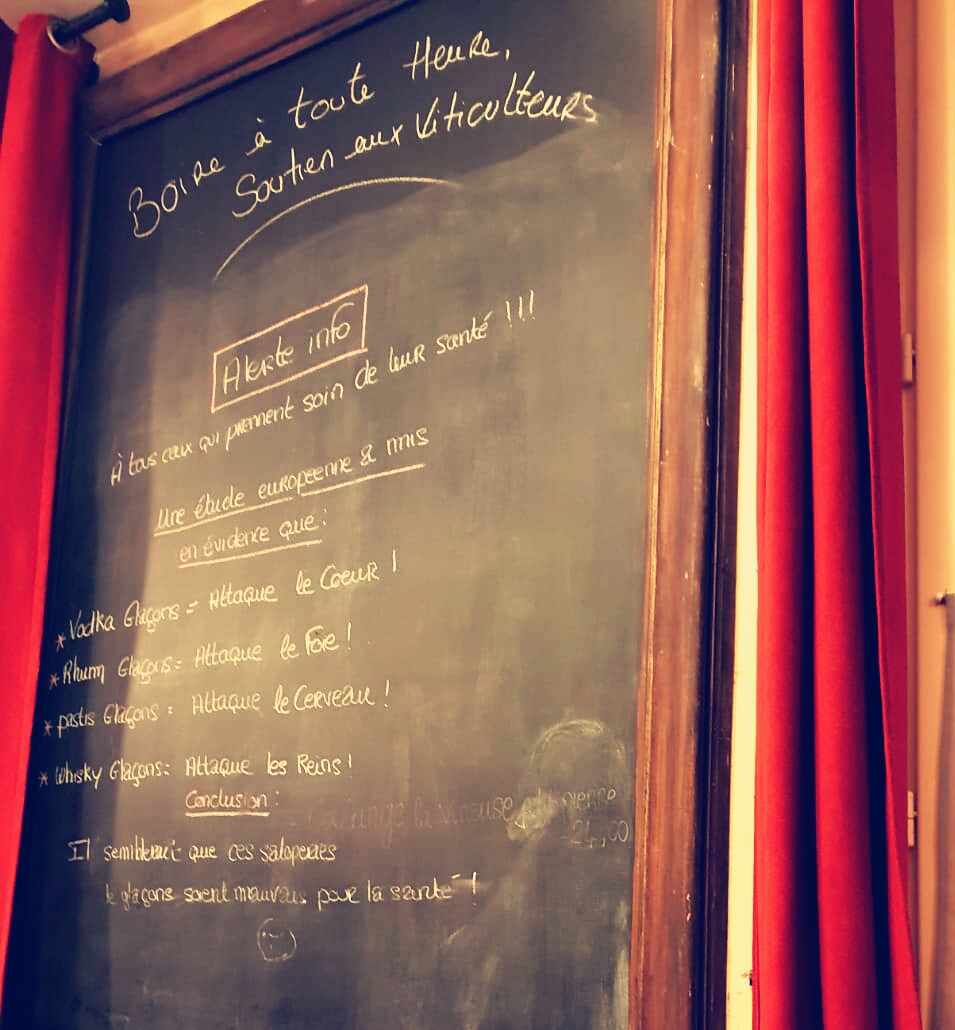 Boire à toute Heure,
Soutien aux Viticulteurs
Alerte info
À tous ceux qui prennent soin de leur santé !!!
Une étude européenne a mis
en évidence que:
* Vodka Glaçons = Attaque le Coeur !
* Rhum Glaçons = Attaque le Foie !
* pastis Glaçons = Attaque le Cerveau !
* Whisky Glaçons = Attaque les Reins !
Conclusion :
la Vineuse
Il semblerait que ces saloperies
de glaçons soient mauvais pour la santé !